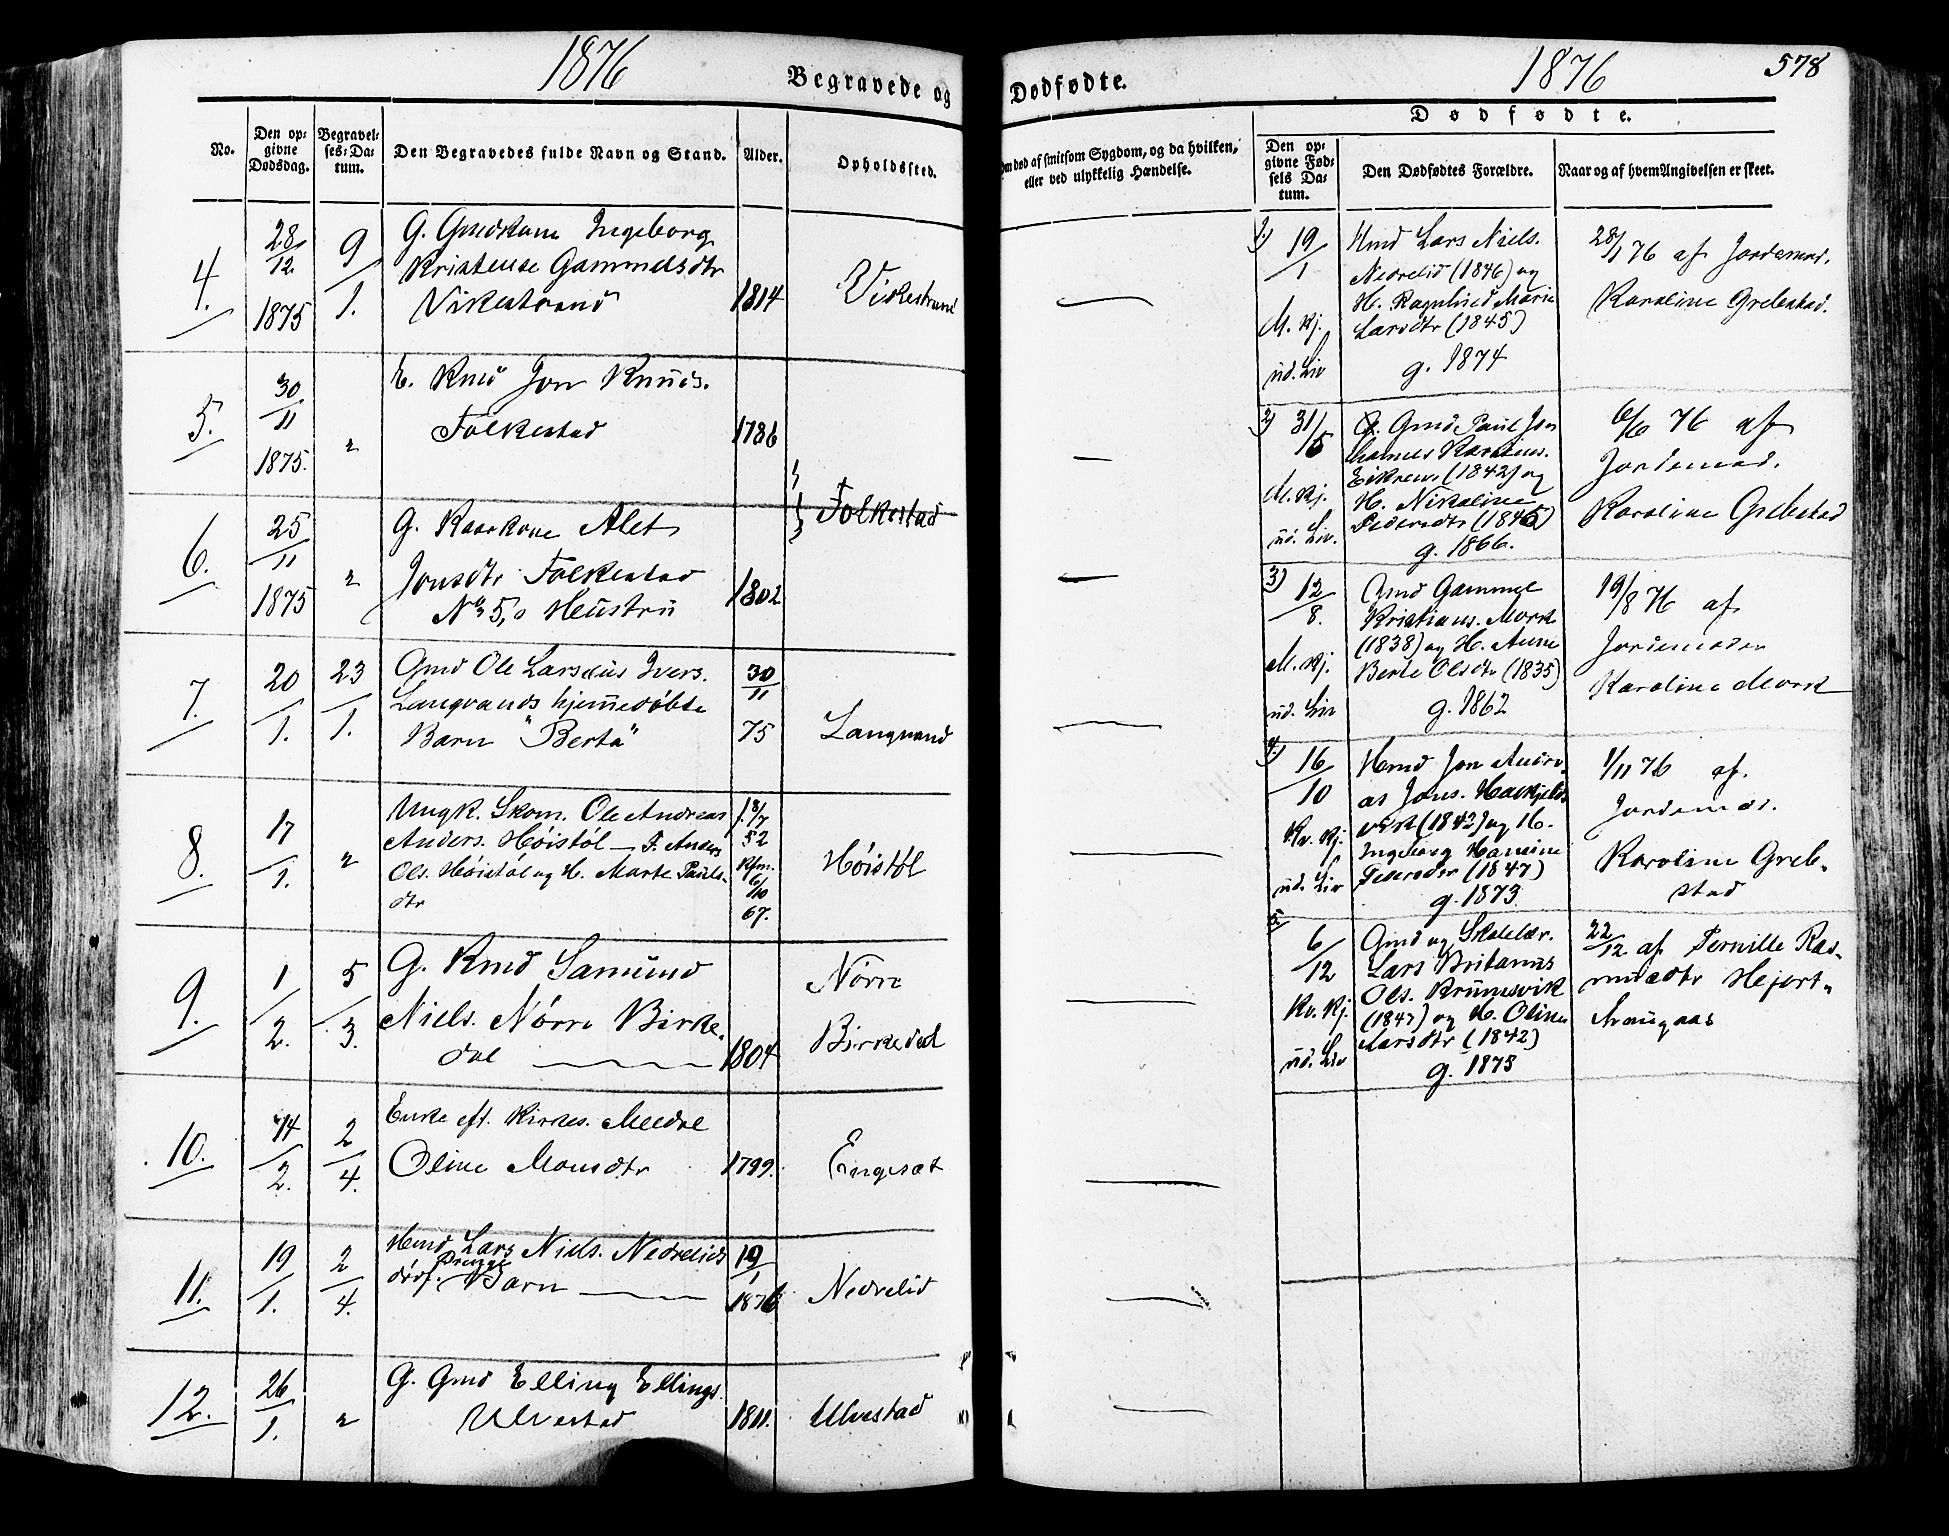 1876
Begravede og
No.
Den op-
givne
Dødsdag.
Begravel-
ses-Da-
tum.
Den Begravedes fulde Navn og Stand.
Alder.
Opholdssted.
4.
28/12
1875
9/1.
G. Gmdskone Ingeborg
Kristense Gammelsdtr
Vikestrand
1814
Vikestrand
5.
30/11
1875.
"
E. Kmd Jon Knuds.
Folkestad
1786
Folkestad
6.
25/11
1875
"
G. Kaarkone Alet
Jonsdtr Folkestad
No 5,s Heüstrü
1802
7.
20/1.
23/1.
Gmd Ole Larsëus Ivers.
Langvands hjemmedøbte
Barn "Berta"
30/11
75
Langvand
8.
17/1.
"
Ungk. Skom. Ole Andreas
Anders. Høistøl — F. Anders
Ols. Høistøl og H. Marte Pauls-
dtr
f. 8/7
52
Kfm.
6/10
67.
Høistøl
9.
1/2.
5/3.
G. Kmd Samünd
Niels. Nørre Birke-
dal
1804
Nørre
Birkedal
10.
14/2.
2/4.
Enke eft. Kirkes. Meldal
Oline Monsdtr
1799.
Engeset
11.
19/1.
2/4.
Hmd Lars Niels. Nedrelids
dødf. Drenge
Barn
19/1
1876
Nedrelid
12.
26/1.
"
G. Gmd Elling Ellings.
Ulvestad
1811.
Ulvestad
Dødfødte.
1876
578
Om død af smitsom Sygdom, og da hvilken,
eller ved ulykkelig Hændelse.
Dødfødte.
Den op-
givne Fød-
sels Da-
tum.
Den Dødfødtes Forældre.
Naar og af hvem Angivelsen er skeet.
1) 19/1
M. Kj.
ud. Liv
Hmd Lars Niels.
Nedrelid (1846) og
H. Ragnhild Marie
Larsdtr (1845)
g. 1874
28/1 76 af Jordemod.
Karoline Grebstad.
2) 31/5
M. Kj.
ud. Liv.
Gmd Paul Jo-
hannes Karolus.
Eikrem (1842) og
H. Nikoline
Pedersdtr (1845)
g. 1866.
6/6 76 af
Jordemod.
Karoline Grebstad
3) 12/8.
M. Kj.
ud. Liv
Gmd Gammel
Kristians. Mork
(1838) og H. Anne
Berte Olsdtr (1835)
g. 1862
19/8 76 af
Jordemoder
Karoline Mork
4) 16/10
Kv. Kj.
ud. Liv
Hmd Jon Andre-
as Jons. Haakjels-
vik (1842) og H.
Ingeborg Hansine
Pedersdtr (1847)
g. 1873.
1/11 76 af
Jordemod.
Karoline Greb-
stad
5. 6/12
Kv. Kj.
ud. Liv
Gmd og Skolelær.
Lars Britanus
Ols. Krumsvik
(1847) og H. Oline
Larsdtr (1842)
g. 1875
22/12 af Pernille Ras-
musdtr Hjort-